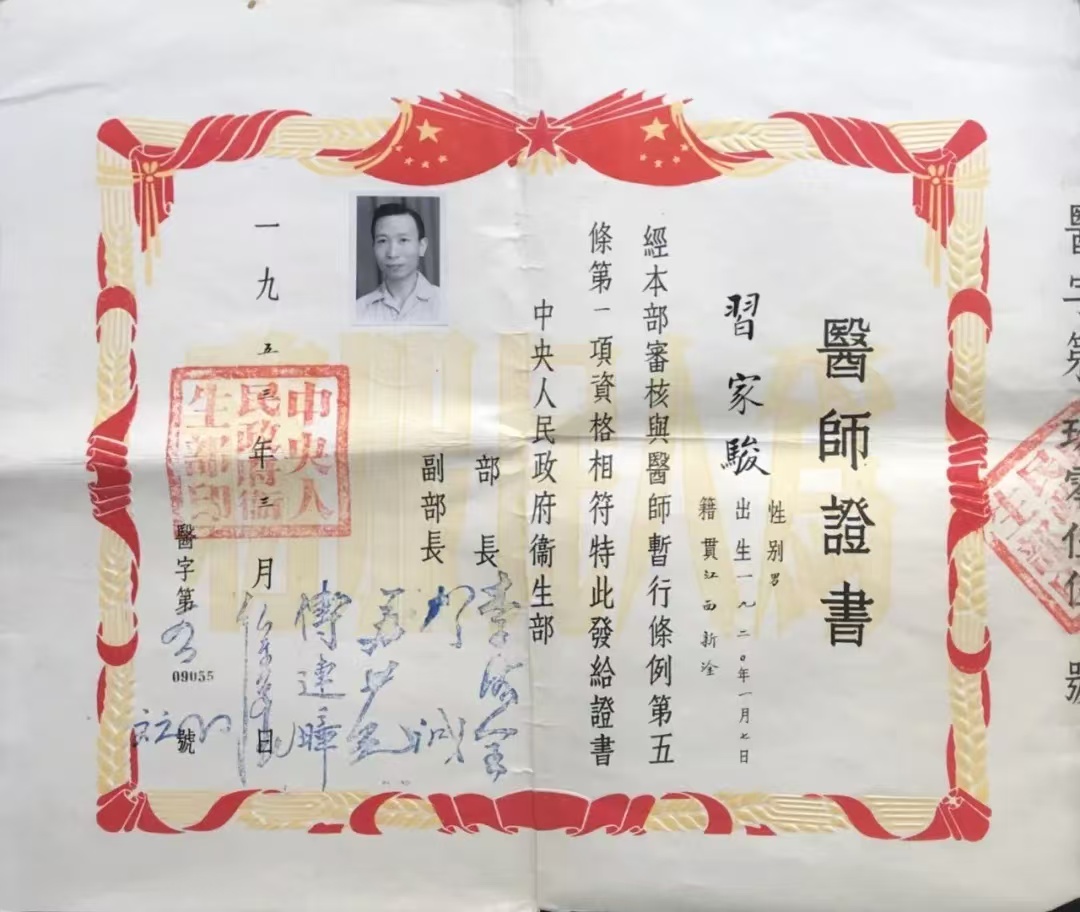 醫師證書
習家駿
性別男
出生一九二〇年一月七日
籍貫江西新淦
經本部審核與醫師暫行條例第五
條第一項資格相符特此發給證書
中央人民政府衞生部
部長
李德全
副部長
傅連暲
一九五三年三月日
中央人
民政府衞
生部印
醫字第
09055
號
醫字第
號